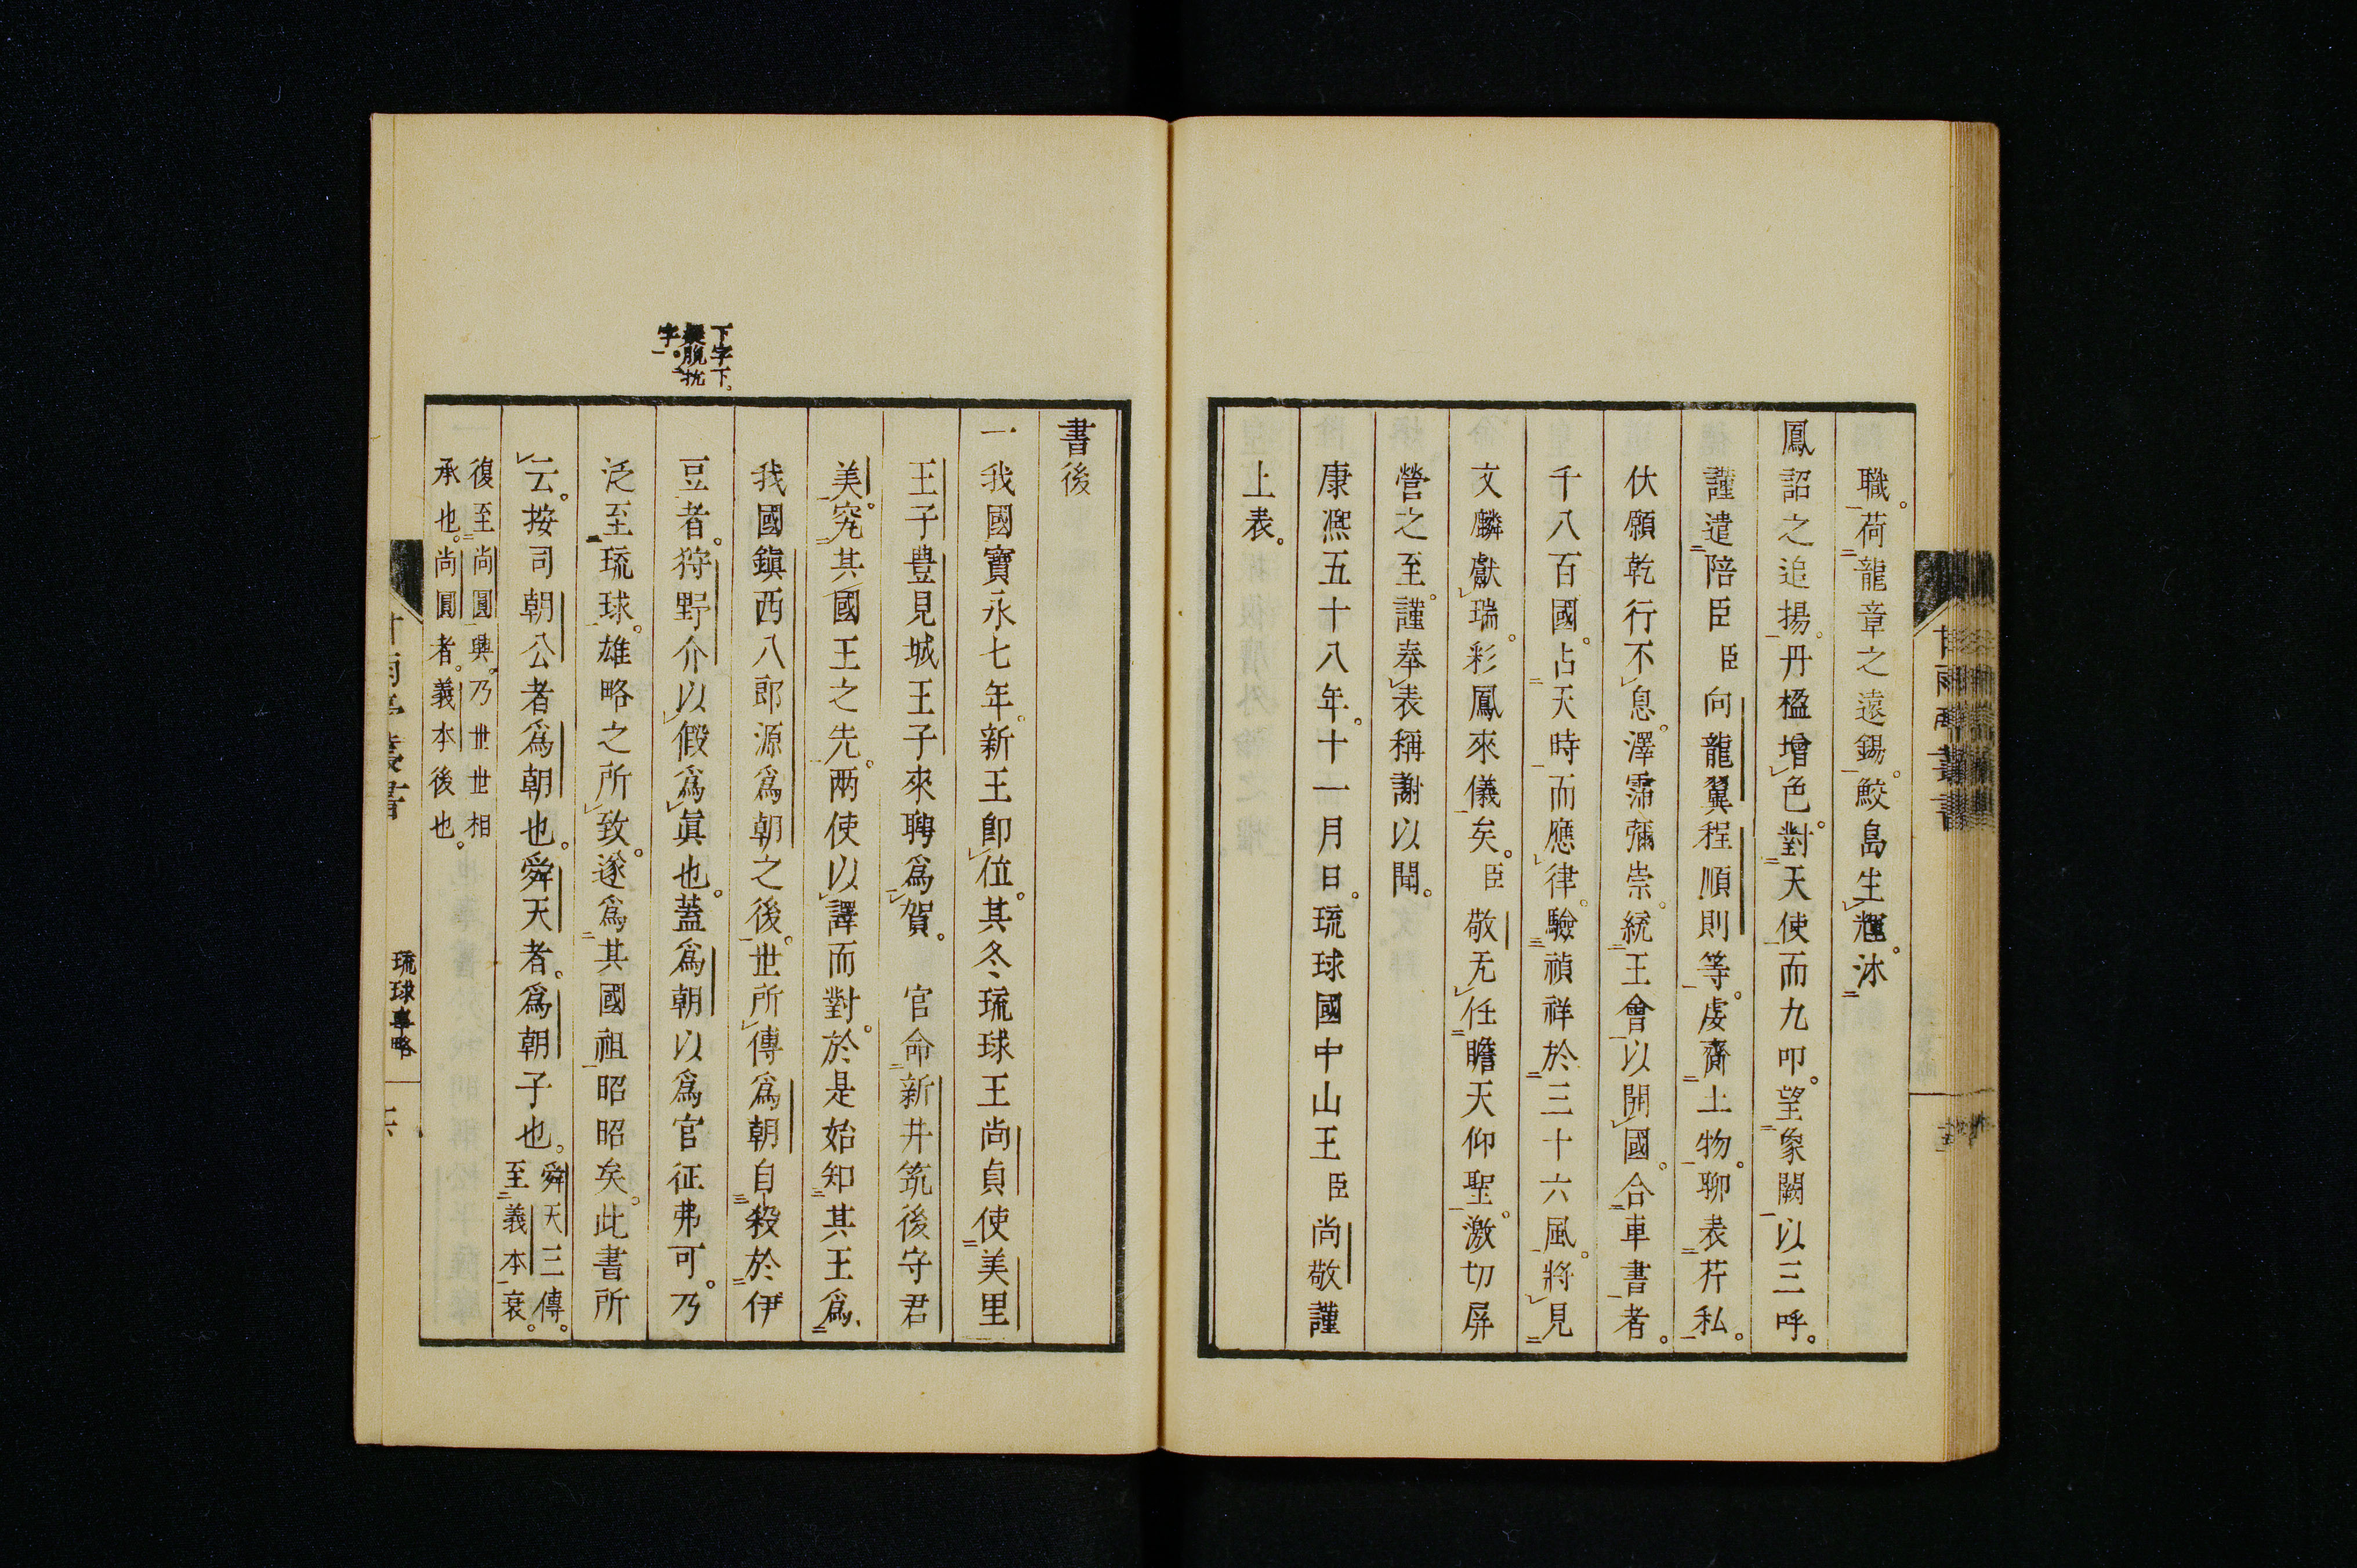 職。荷龍章之遠錫。鮫島生輝。沐
鳳詔之追揚。丹楹增色。對天使而九叩。望象闕以三呼。
謹遣陪臣臣向龍翼程順則等。虔齎土物。聊表芹私。
伏願乾行不息。澤霈彌崇。統王會以開國。合車書者。
千八百國。占天時而應律。驗禎祥於三十六風。將見
文麟獻瑞。彩鳳來儀矣。臣敬无任瞻天仰聖。激切屏
營之至。謹奉表稱謝以聞。
康熙五十八年。十一月日。琉球國中山王臣尚敬謹
上表。
甘雨亭叢書
書後
一我國寶永七年。新王卽位。其冬、琉球王尚貞使美里
王子豊見城王子來聘爲賀。官命新井筑後守君
美。究其國王之先。兩使以譯而對。於是始知其王爲、
我國鎭西八郎源爲朝之後。世所傳爲朝自殺於伊
豆者。狩野介以假爲眞也。蓋爲朝以爲官征弗可。乃
泛至琉球。雄略之所致。遂爲其國祖昭昭矣。此書所
云。按司朝公者爲朝也。舜天者。爲朝子也。舜天三傳。
至義本衰。
復至尚圓興。乃世世相
承也。尚圓者。義本後也。
下字下。
疑脫扰
字。
琉球事略